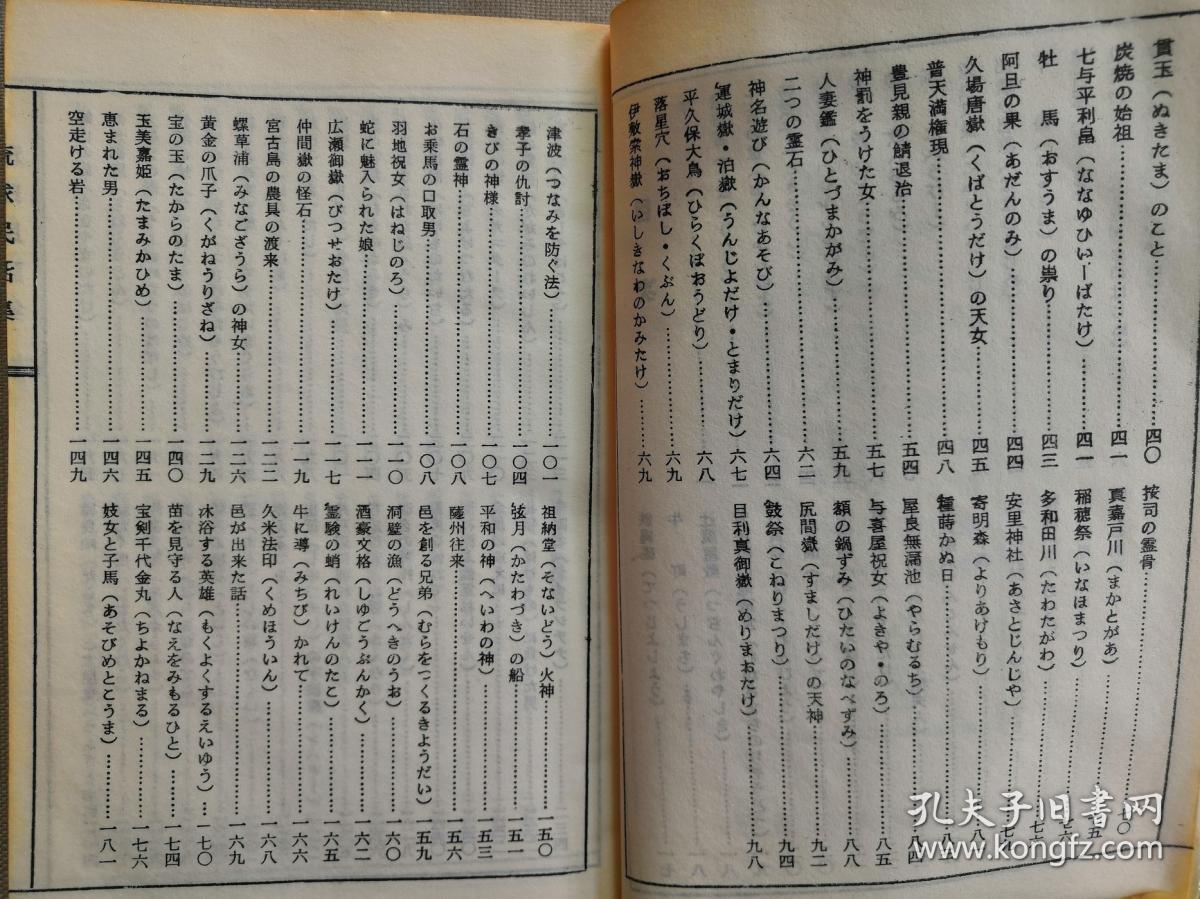 貫玉(ぬきたま)のこと…………四〇
炭焼の始祖…………四一
七与平利畠(ななゆひいーばたけ)…………四一
牡 馬(おすうま)の祟り…………四三
阿旦の果(あだんのみ)…………四四
久場唐嶽(くばとうだけ)の天女…………四五
普天満権現…………四八
豊見親の鯖退治…………五四
神罰をうけた女…………五七
人妻鑑(ひとづまかがみ)…………五九
二つの霊石…………六二
神名遊び(かんなあそび)…………六四
運城嶽・泊嶽(うんじよだけ・とまりだけ)六七
平久保大鳥(ひらくぼおうどり)…………六八
落星穴(おちぼし・くぶん)…………六九
伊敷索神嶽(いしきなわのかみたけ)…………六九
按司の霊骨…………七〇
真嘉戸川(まかとがあ)…………
稲穂祭(いなほまつり)…………
多和田川(たわたがわ)…………
安里神社(あさとじんじや)…………
寄明森(よりあけもり)…………
種蒔かぬ日…………
屋良無漏池(やらむるち)…………八四
与喜屋祝女(よきや・のろ)…………八五
額の鍋ずみ(ひたいのなべずみ)…………八八
尻間嶽(すましだけ)の天神…………九二
鼓祭(こねりまつり)…………九四
目利真御嶽(めりまおたけ)…………九八
津波(つなみを防ぐ法)…………一〇一
孝子の仇討…………一〇四
きびの神様…………一〇七
石の霊神…………一〇八
お乗馬の口取男…………一〇八
羽地祝女(はねじのろ)…………一一〇
蛇に魅入られた娘…………一一一
広瀬御嶽(びつせおたけ)…………一一七
仲間嶽の怪石…………一一九
宮古島の農具の渡来…………一二二
螺草浦(みなござうら)の神女…………一二六
黄金の爪子(くがねうりざね)…………一二九
宝の玉(たからのたま)…………一四〇
玉美嘉姫(たまみかひめ)…………一四五
恵まれた男…………一四六
空走ける岩…………一四九
祖納堂(そないどう)火神…………一五〇
弦月(かたわづき)の船…………一五一
平和の神(へいわの神)…………一五三
薩州往来…………一五六
邑を創る兄弟(むらをつくるきようだい)一五九
洞壁の漁(どうへきのうお)…………一六〇
酒豪文格(しゆごうぶんかく)…………一六二
霊験の蛸(れいけんのたこ)…………一六五
牛に導(みちび)かれて…………一六六
久米法印(くめほういん)…………一六八
邑が出来た話…………一六九
沐浴する英雄(もくよくするえいゆう)…一七〇
苗を見守る人(なえをみもるひと)…………一七四
宝剣千代金丸(ちよかねまる)…………一七六
妓女と子馬(あそびめとこうま)…………一八一
琉球民話集
孔夫子旧书网
www.kongfz.com